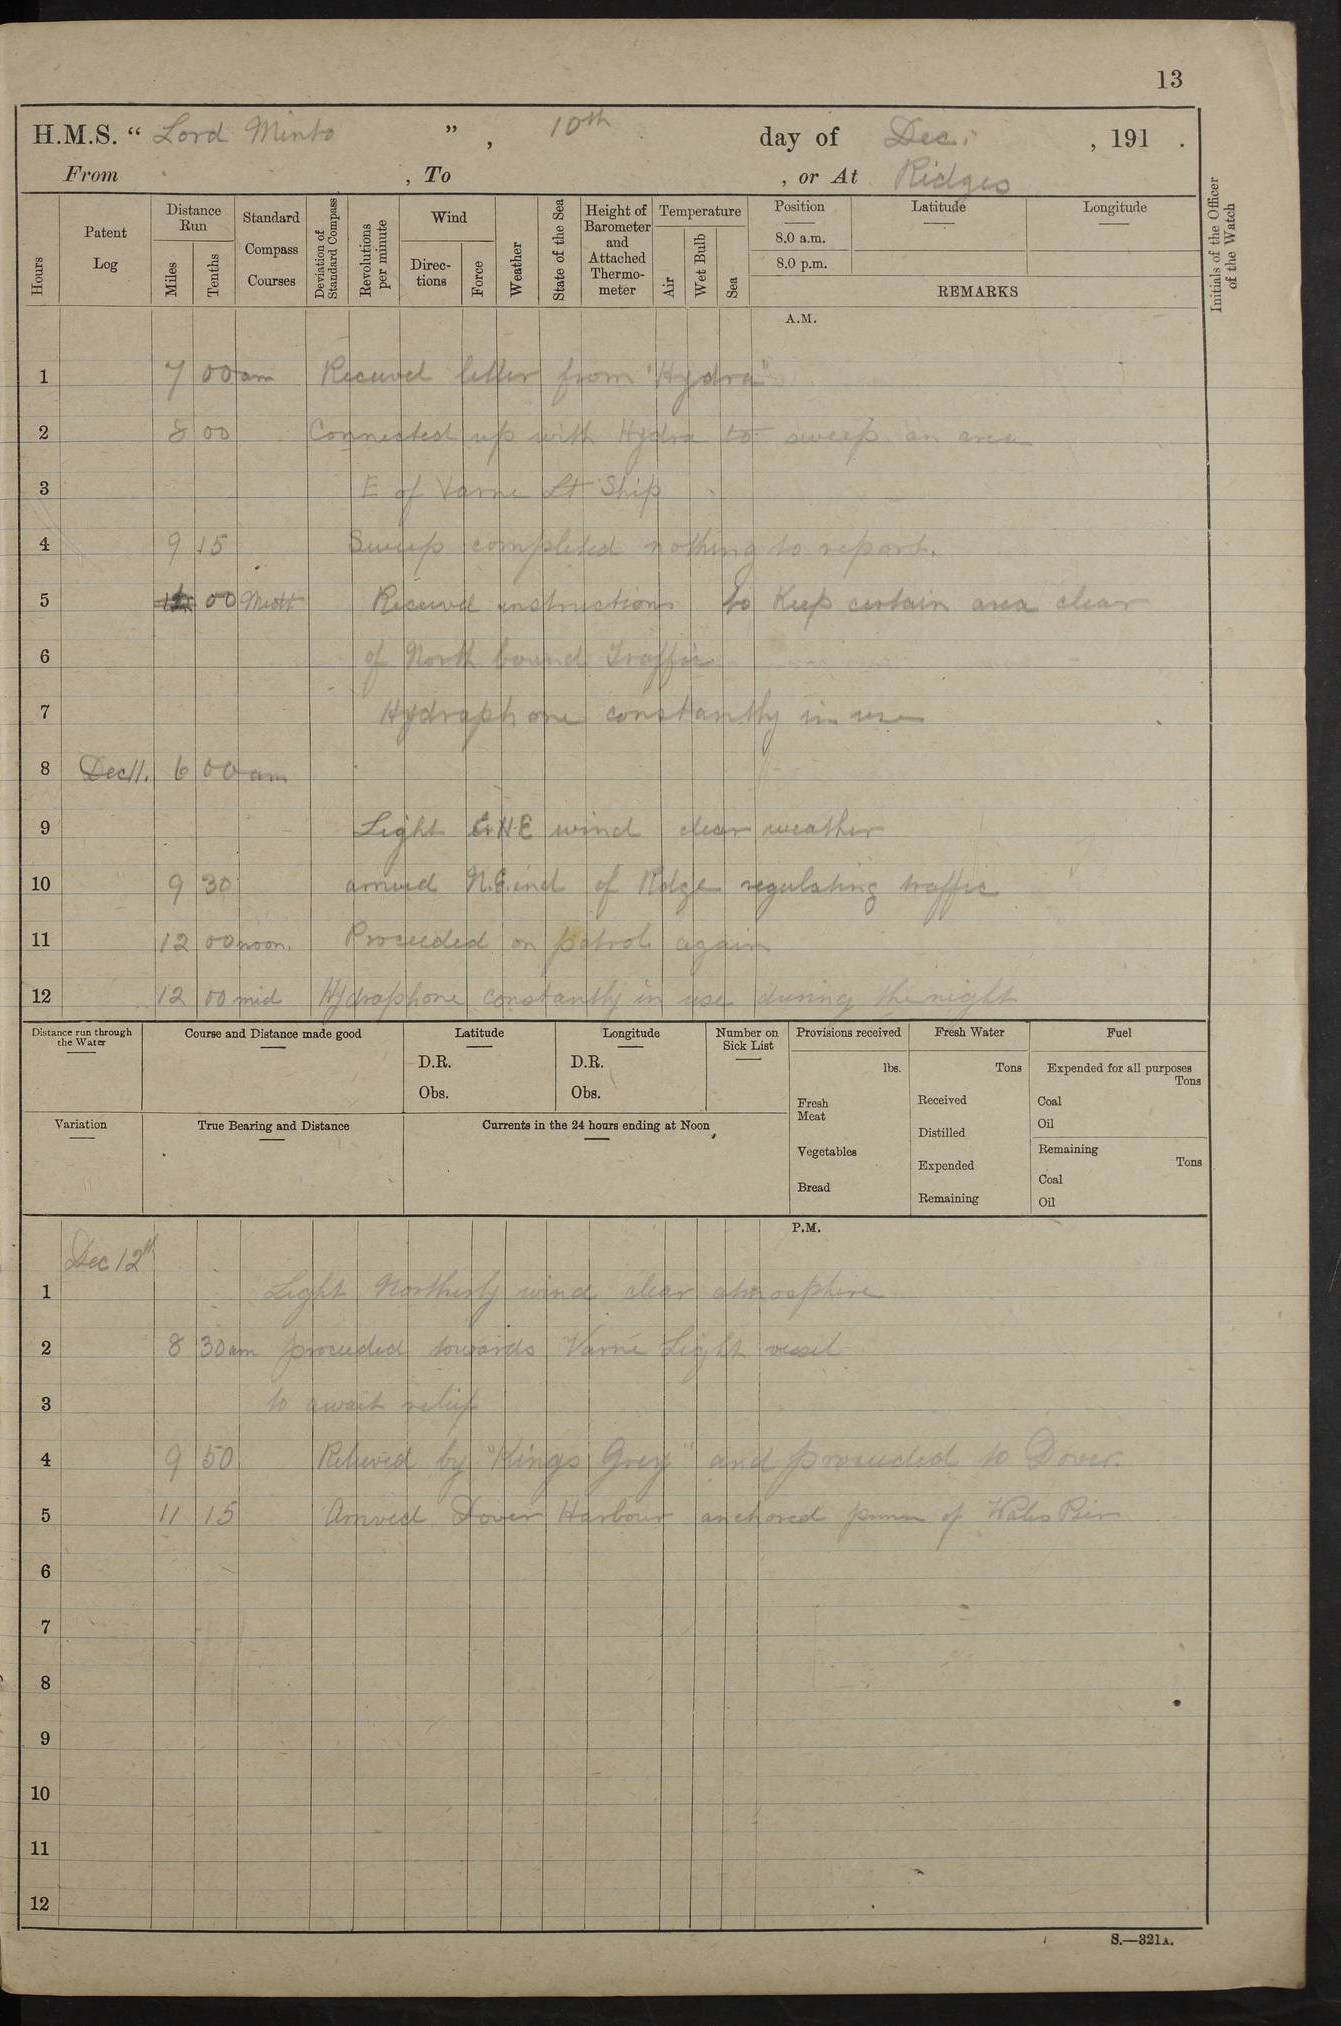 13
H.M.S. “ Lord Minto ” , 10th day of Dec. , 191 .
From , To , or At Ridges
Hours
Patent Log
Distance Run
Miles
Tenths
Standard Compass Courses
Deviation of Standard Compass
Revolutions per minute
Wind
Direc- tions
Force
Weather
State of the Sea
Height of Barometer and Attached Thermo- meter
Temperature
Air
Wet Bulb
Sea
Position
8.0 a.m.
8.0 p.m.
Latitude
Longitude
REMARKS
Initials of the Officer of the Watch
A.M.
1 7 00 am Received letter from "Hydra"
2 8 00 Connected up with Hydra to sweep an area
3 E of Varne Lt Ship
4 9 15 Sweep completed nothing to report.
5 00 Received instructions to Keep certain area clear
6 of North bound Traffic
7 Hydraphone constantly in use
8 Dec 11. 6 00 am
9 Light E.N.E wind clear weather
10 9 30 arrived N.E. end of Ridge regulating traffic
11 12 00 noon. Proceeded on patrol again
12 12 00 mid Hydraphone constantly in use during the night
Distance run through the Water
Course and Distance made good
Latitude
D.R.
Obs.
Longitude
D.R.
Obs.
Number on Sick List
Provisions received
lbs.
Fresh Meat
Vegetables
Bread
Fresh Water
Tons
Received
Distilled
Expended
Remaining
Fuel
Expended for all purposes
Tons
Coal
Oil
Remaining
Tons
Coal
Oil
Variation
True Bearing and Distance
Currents in the 24 hours ending at Noon
P.M.
Dec 12th
1 Light Northerly wind clear atmosphere
2 8 30 am proceeded towards Varne Light vessel
3 to await relief
4 9 50 Relieved by "Kings Grey" and proceeded to Dover.
5 11 15 Arrived Dover Harbour anchored of Wales Pier
6
7
8
9
10
11
12
S.—321A.